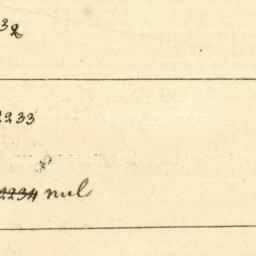 32
2233
2234 nul